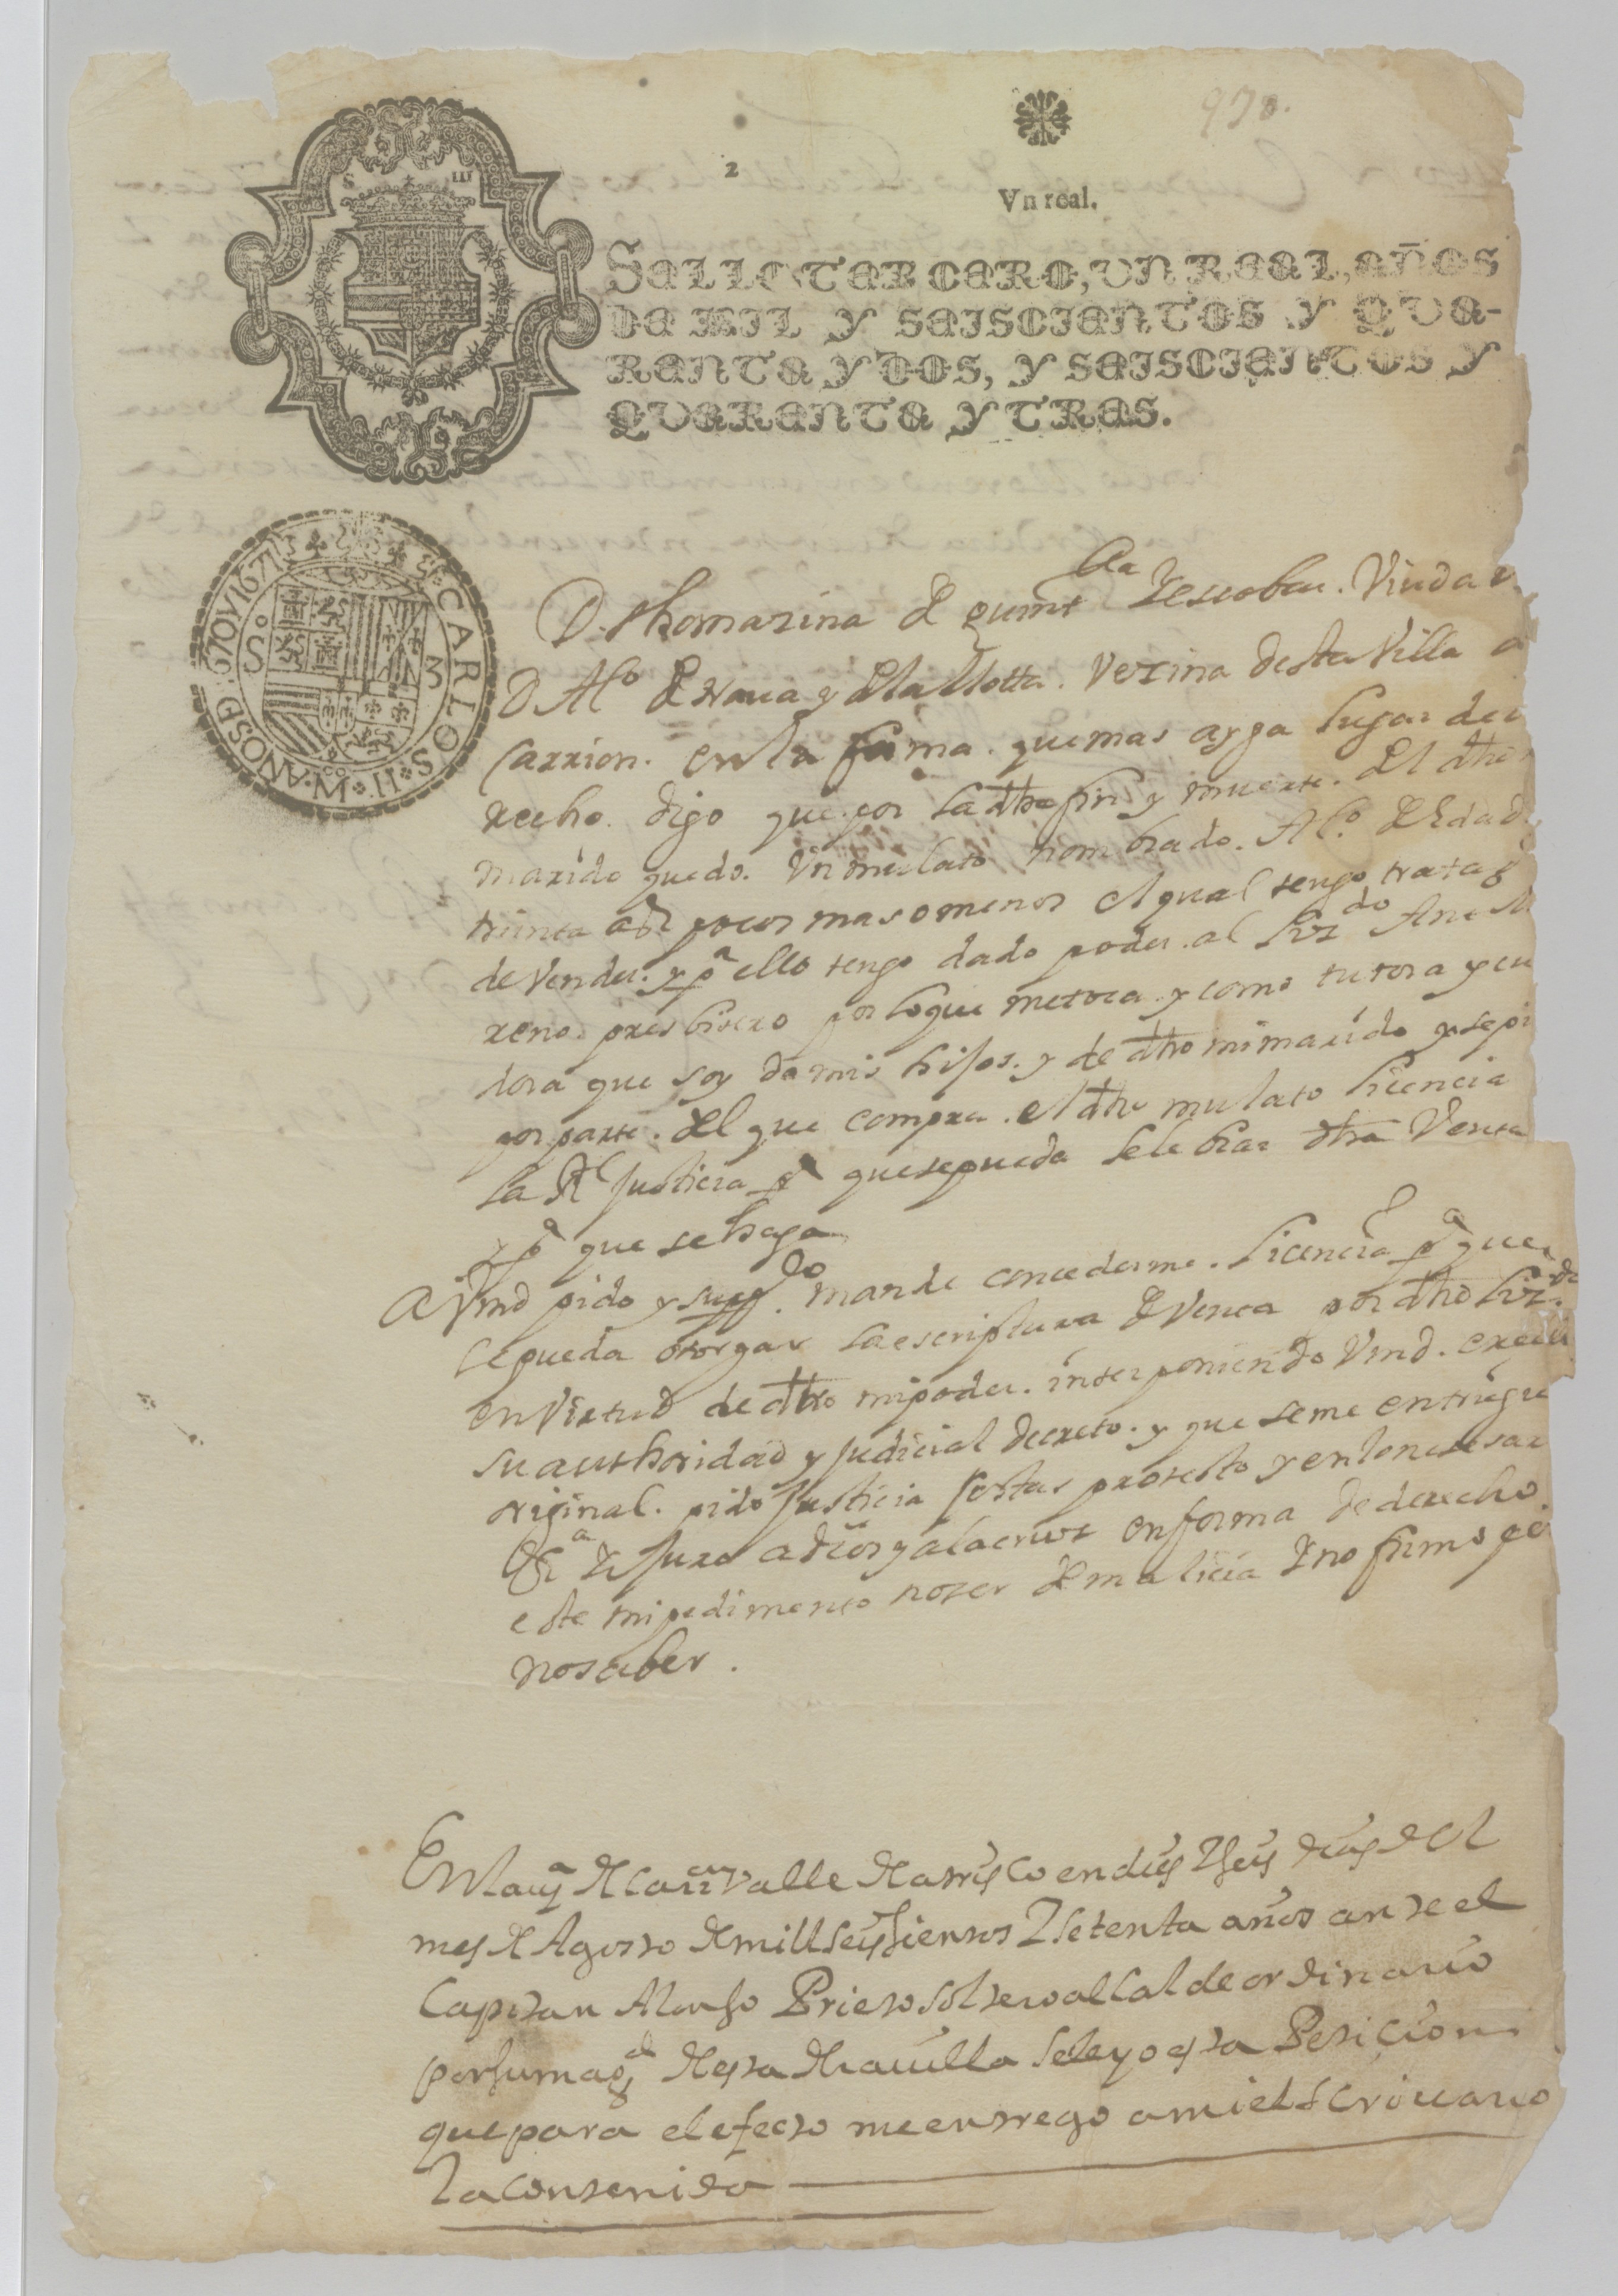 978.
2
Vn real.
SELLO TERCERO, VN REAL, AÑOS
DE MIL Y SEISCIENTOS Y QVA-
RENTA Y DOS, Y SEISCIENTOS Y
QVARENTA Y TRES.
S III
CARLOS·II·M·AÑOS D 1670 Y 1671
S 3
D. thomazina de quint na descobar. Viuda
D Alo de Naua y de la Motta. Vezina desta Villa
Carrion. en la forma. que mas ayga lugar de
recho. digo que por la dha fin y muerte. del dho
marido quedo. Vn mulato nombrado. Alo. de Edad
treinta as pocos mas o menos el qual tengo trata
de Vender. y pa ello tengo dado poder. al Lizdo
presbitero por lo que me toca. y como tutora y cu
dora que soy de mis hijos. y de dho mi marido y se pi
por parte. del que compra. el dho mulato licencia
la Rl justicia pa que se pueda selebrar dha Venta
y pa que se haga
A Vmd pido y suppco. mande concederme. licencia pa que
se pueda otorgar la escriptura de Venta por dho Lizdo
en Virtud de dho mi poder. interponiendo Vmd. en ella
su authoridad y judicial decreto. y que se me entriegue
original. pido justicia costas protesto y en lo nesesar
Juro a dios y a la cruz en forma de derecho.
este mi pedimento no ser de malicia no firmo po
no saber.
En la va de Carrn valle de Atrisco en dies y seis dias del
mes de Agosto de mill seissientos y setenta años ante el
Capitan Alonso Prieto alcalde ordinario
por su magd desta dha uilla se leyo esta Petiçion
que para el efecto me entrego a mi el escriuano
la contenida